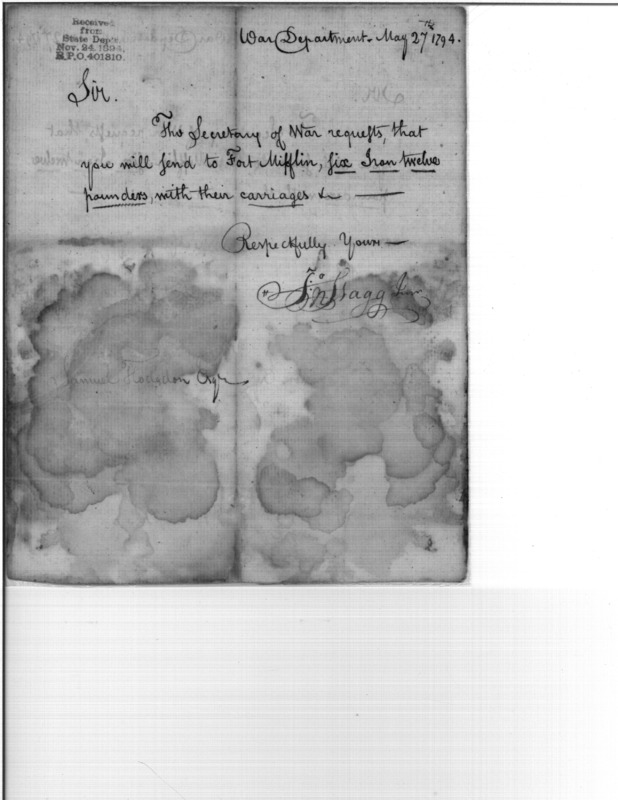 Received
from
State Dep't
Nov. 24. 1894.
R.P.O. 401810.
War Department. May 27th 1794.
Sir.
The Secretary of War requests, that
you will send to Fort Mifflin, six Iron twelve
pounders, with their carriages &c
Respectfully Yours
Jno Stagg Junr
Samuel Hodgdon Esqr